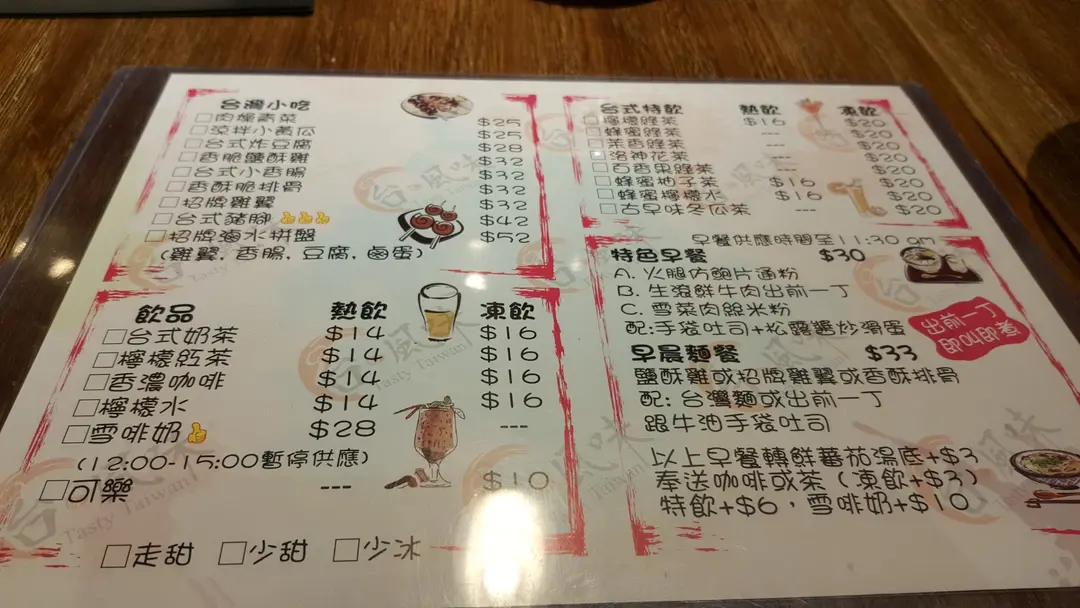 台灣小吃
□肉燥青菜 $25
□涼拌小黃瓜 $25
□台式炸豆腐 $28
□香脆鹽酥雞 $32
□台式小香腸 $32
□香酥脆排骨 $32
□招牌雞翼 $32
□台式豬腳 $42
□招牌滷水拼盤 $52
(雞翼, 香腸, 豆腐, 鹵蛋)
飲品 熱飲 凍飲
□台式奶茶 $14 $16
□檸檬紅茶 $14 $16
□香濃咖啡 $14 $16
□檸檬水 $14 $16
□雪啡奶 $28 ---
(12:00-15:00暫停供應)
□可樂 --- $10
□走甜 □少甜 □少冰
台式特飲 熱飲 凍飲
□檸檬綠茶 $16 $20
□蜂蜜綠茶 --- $20
□茉香綠茶 $20
□洛神花茶 --- $20
□百香果綠茶 --- $20
□蜂蜜柚子茶 $16 $20
□蜂蜜檸檬水 $16 $20
□古早味冬瓜茶 --- $20
早餐供應時間至11:30 am
特色早餐 $30
A. 火腿仿鮑片通粉
B. 生滾鮮牛肉出前一丁
C. 雪菜肉絲米粉
配:手袋吐司+松露醬炒滑蛋
出前一丁
即叫即煮
早晨麵餐 $33
鹽酥雞或招牌雞翼或香酥排骨
配: 台灣麵或出前一丁
跟牛油手袋吐司
以上早餐轉鮮蕃茄湯底+$3
奉送咖啡或茶 (凍飲+$3)
特飲+$6，雪啡奶+$10
台·風味
Tasty Taiwan